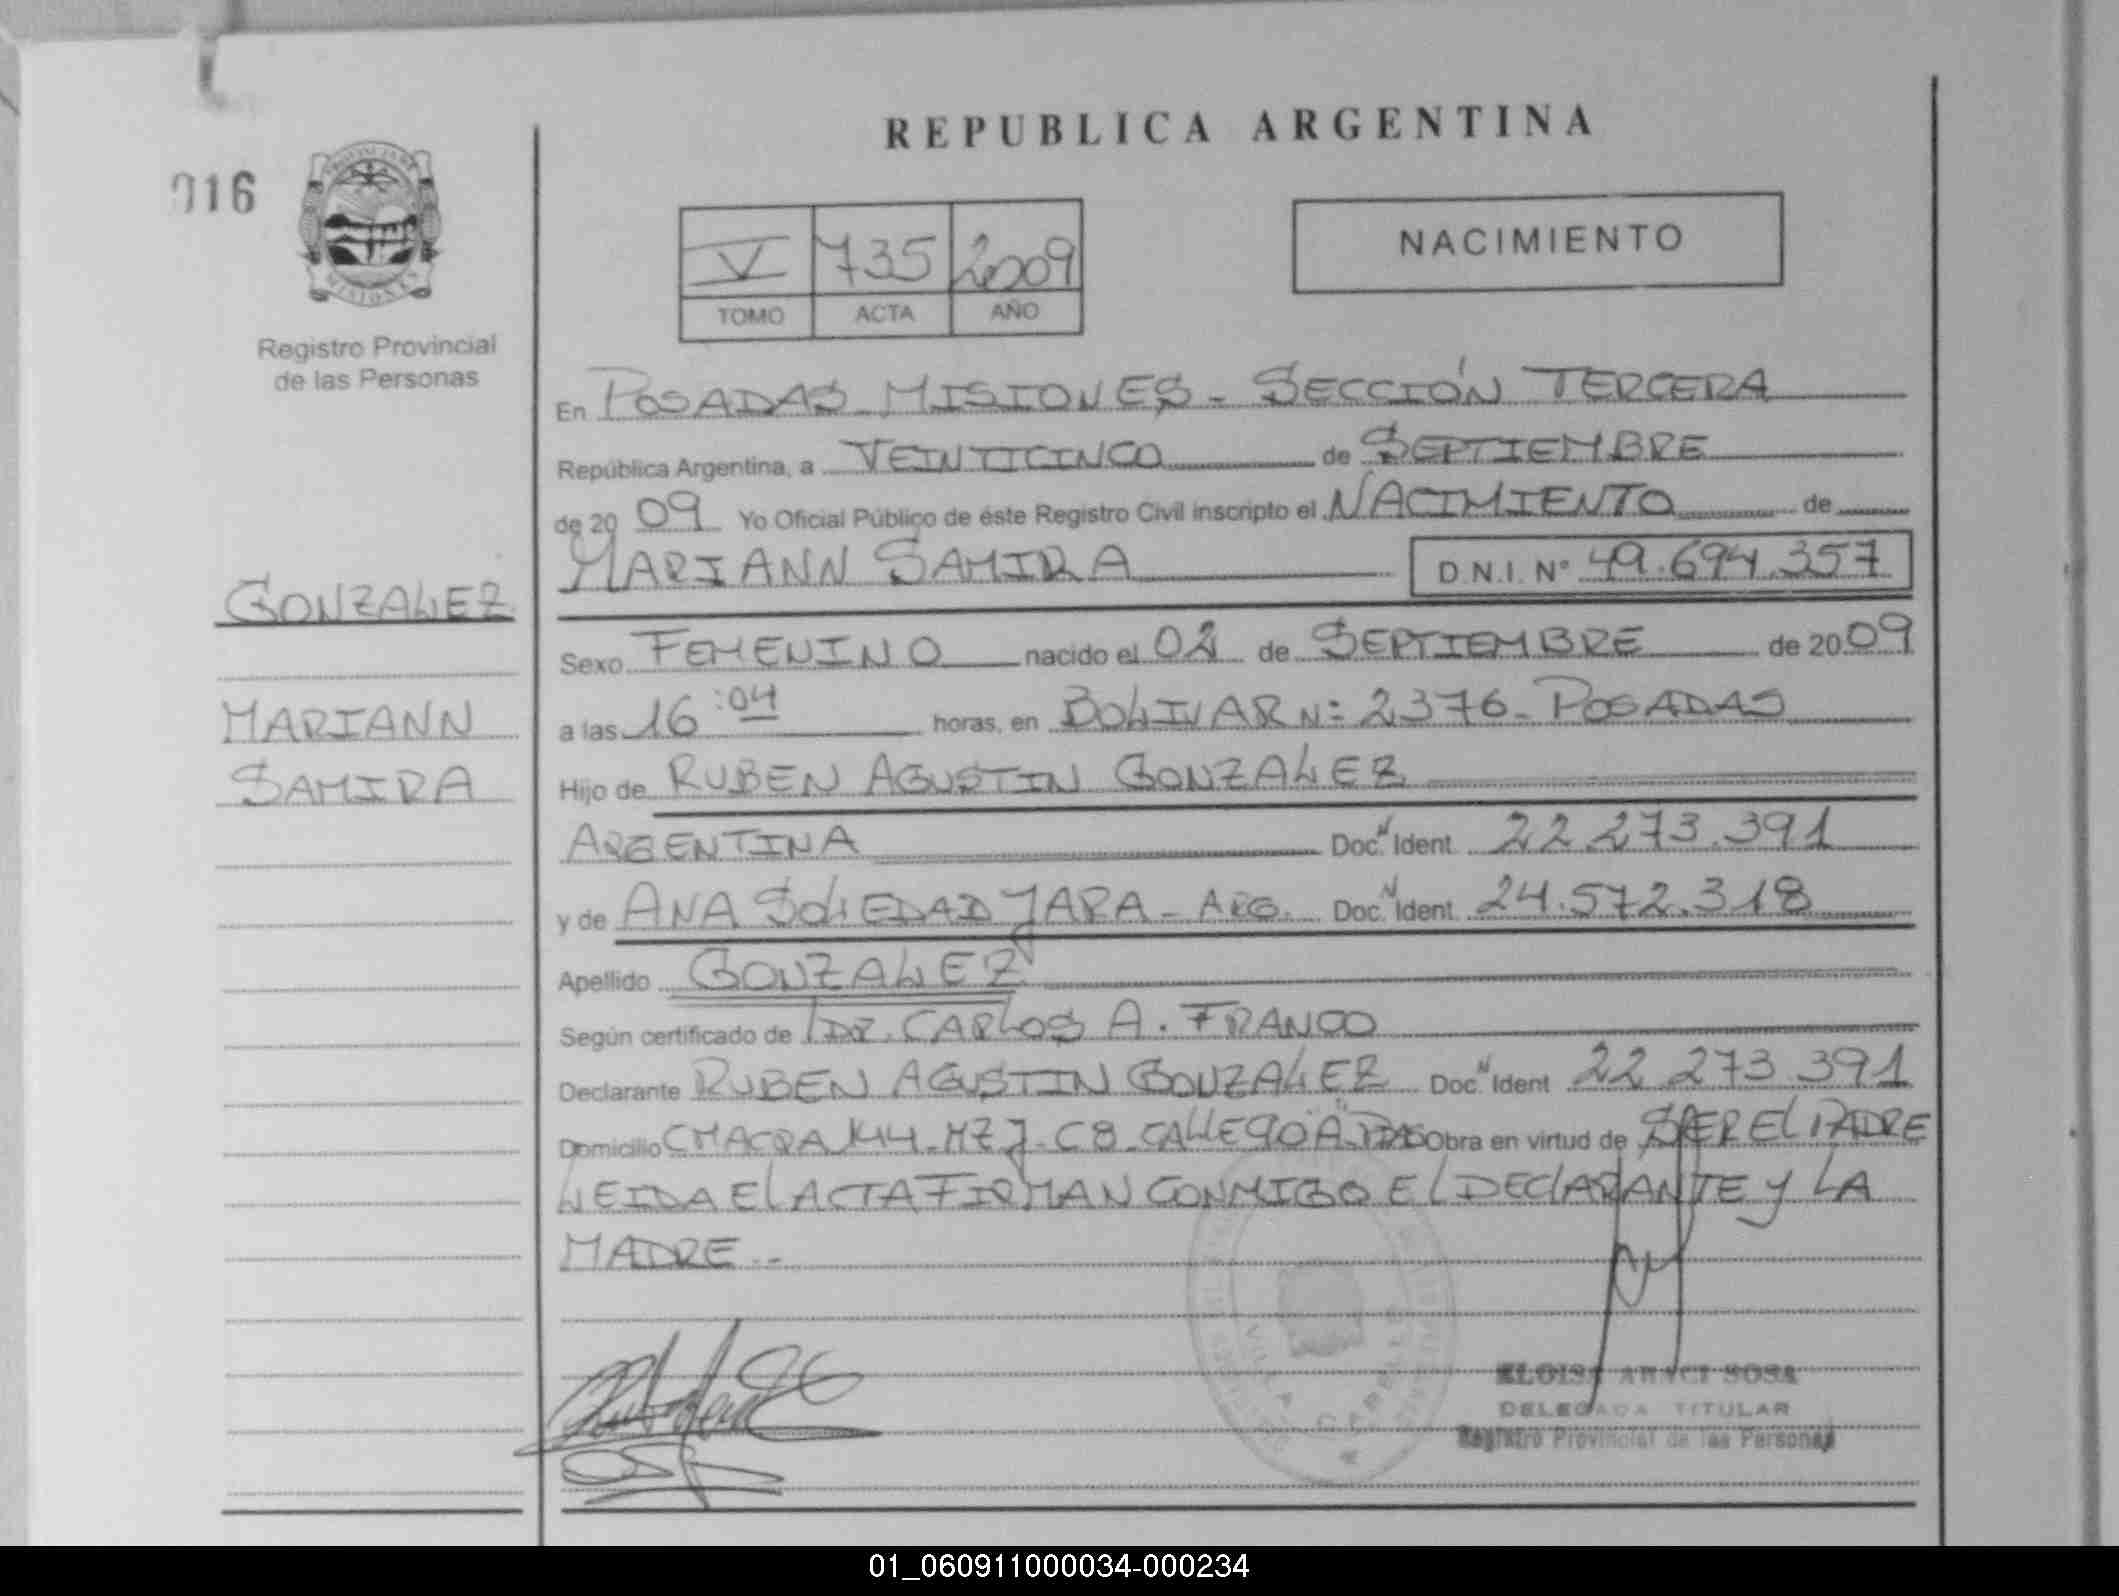 REPUBLICA ARGENTINA
016
PROVINCIA DE
MISIONES
Registro Provincial
de las Personas
V 735 2009
TOMO ACTA AÑO
NACIMIENTO
En POSADAS MISIONES - SECCIÓN TERCERA
República Argentina, a VEINTICINCO de SEPTIEMBRE
de 2009 Yo Oficial Público de éste Registro Civil inscripto el NACIMIENTO de
MARIANN SAMIRA D.N.I. N° 49.694.357
GONZALEZ
MARIANN
SAMIRA
Sexo FEMENINO nacido el 02 de SEPTIEMBRE de 2009
a las 16:04 horas, en BOLIVAR N: 2376 - POSADAS
Hijo de RUBEN AGUSTIN GONZALEZ
ARGENTINA Doc. N Ident 22.273.391
y de ANA SOLEDAD JARA - ARG. Doc. N Ident. 24.572.318
Apellido GONZALEZ
Según certificado de DR. CARLOS A. FRANCO
Declarante RUBEN AGUSTIN GONZALEZ Doc. N Ident 22 273 391
Domicilio CHACRA 144 - MZ J - C 8 - CALLE 90 A Obra en virtud de SER EL PADRE
LEIDA EL ACTA FIRMAN CONMIGO EL DECLARANTE Y LA
MADRE --
ELOISA ARACI SOSA
DELEGADA TITULAR
Registro Provincial de las Personas
01_060911000034-000234